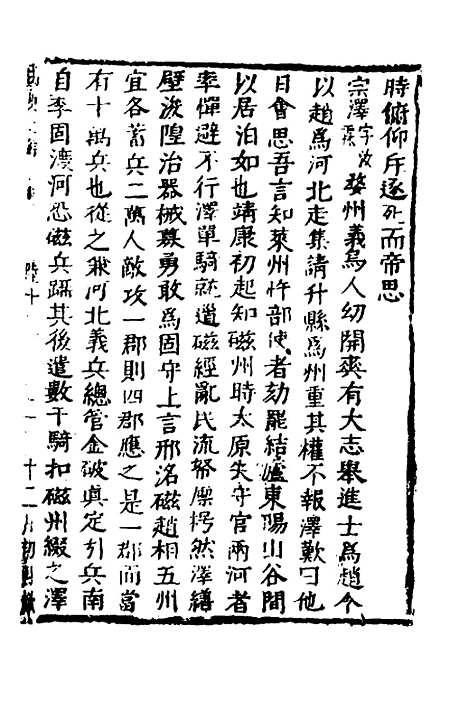 時俯仰斥逐死而帝思
宗澤字汝霖婺州義烏人幼開爽有大志舉進士爲趙令
以趙爲河北走集請升縣爲州重其權不報澤歎曰他
日會思吾言知萊州忤部使者劾罷結廬東陽山谷間
以居泊如也靖康初起知磁州時太原失守官兩河者
率憚避不行澤單騎就道磁經亂民流帑廩枵然澤繕
壁浚隍治器械募勇敢爲固守上言邢洺磁趙相五州
宜各蓄兵二萬人敵攻一郡則四郡應之是一郡而當
有十萬兵也從之兼河北義兵總管金破真定引兵南
自李固渡河恐磁兵躡其後遣數千騎扣磁州綴之澤